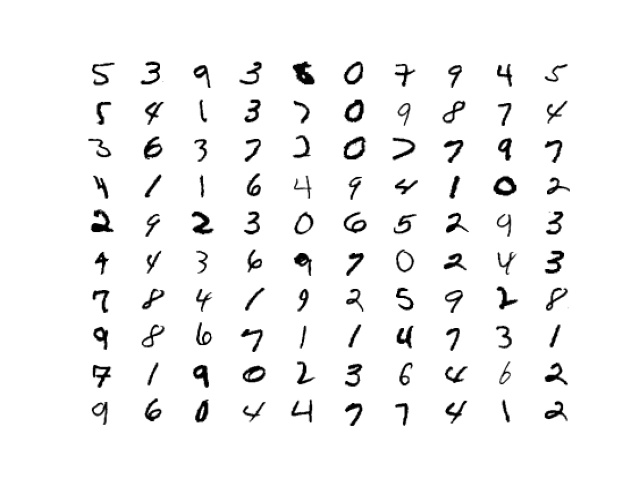 5 3 9 3 8 0 7 9 4 5
5 4 1 3 7 0 9 8 7 4
3 6 3 7 2 0 7 7 9 7
4 1 1 6 4 9 4 1 0 2
2 9 2 3 0 6 5 2 9 3
4 4 3 6 9 7 0 2 4 3
7 8 4 1 9 2 5 9 2 8
9 8 6 7 1 1 4 7 3 1
7 1 9 0 2 3 6 4 6 2
9 6 0 4 4 7 7 4 1 2